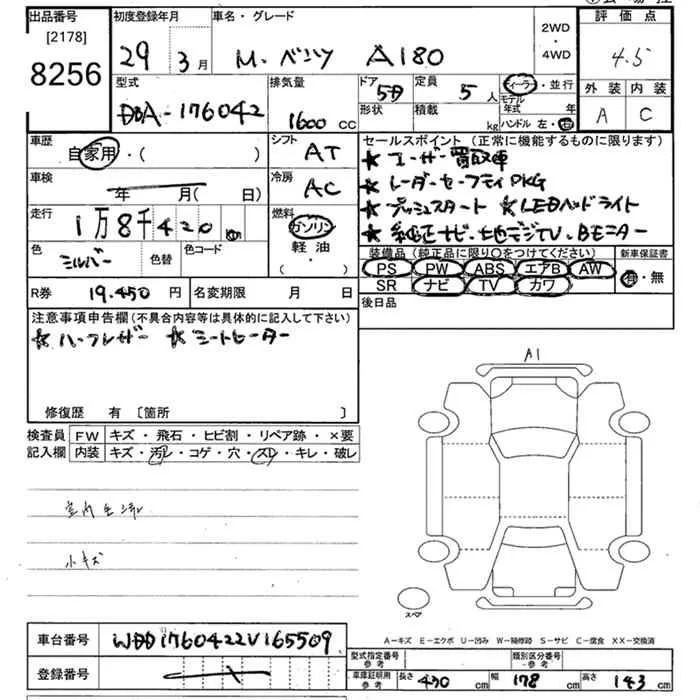 出品番号 初度登録年月 車名・グレード 2WD・4WD 評価点
[2178] 8256 29年 3月 M・ベンツ A180 4.5
型式 排気量 ドア 5D 定員 5人 ディーラー・並行 外装 内装
DBA-176042 1600cc 形状 積載 kg モデル年式 年 ハンドル 左・右 A C
車歴 自家用・( ) シフト AT セールスポイント(正常に機能するものに限ります)
★ユーザー買取車
車検 年 月(日) 冷房 AC ★レーダーセーフティPKG
走行 1万8千420 燃料 ガソリン 軽油 ( ・ ) ★プッシュスタート ★LEDヘッドライト
★純正ナビ・地デジTV.Bモニター
色 シルバー 色替 色コード 装備品(純正品に限り○をつけてください) 新車保証書
PS PW ABS エアB AW 有・無
SR ナビ TV カワ
R券 19.450円 名変期限 月 日 後日品
注意事項申告欄(不具合内容等は具体的に記入して下さい)
★ハーフレザー ★シートヒーター
A1
修復歴 有 [箇所 ]
検査員 FW キズ・飛石・ヒビ割・リペア跡・×要
記入欄 内装 キズ・汚レ・コゲ・穴・スレ・キレ・破レ
小キズ
スペア
A-キズ E-エクボ U-凹み W-補修跡 S-サビ C-腐食 XX-交換済
車台番号 WDD1760422V165509 型式指定番号 参考 類別区分番号 参考
登録番号 車庫証明用 参考 長さ 430cm 幅 178cm 高さ 143cm